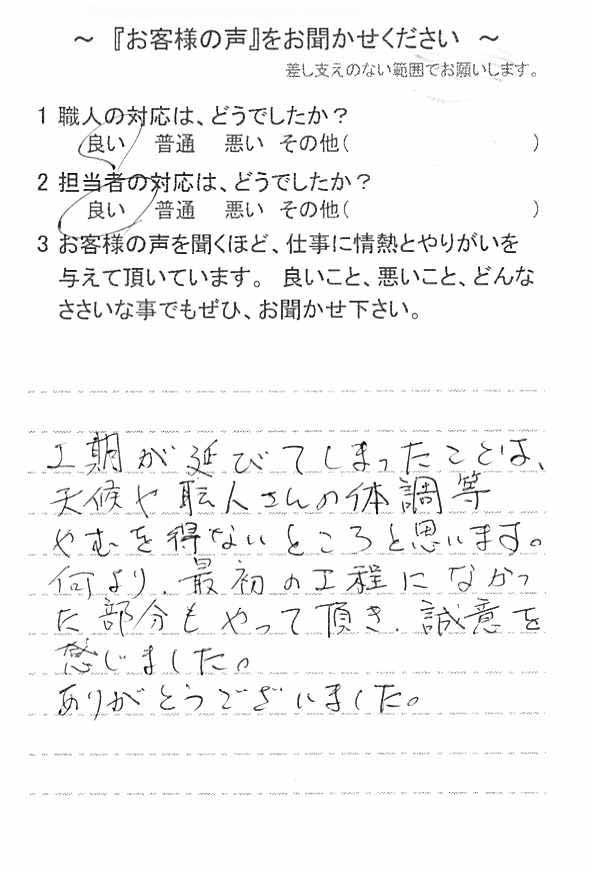 ～ 『お客様の声』をお聞かせください ～
差し支えのない範囲でお願いします。
1 職人の対応は、どうでしたか？
良い 普通 悪い その他( )
2 担当者の対応は、どうでしたか？
良い 普通 悪い その他( )
3 お客様の声を聞くほど、仕事に情熱とやりがいを
与えて頂いています。 良いこと、悪いこと、どんな
ささいな事でもぜひ、お聞かせ下さい。
工期が延びてしまったことは、
天候や職人さんの体調等
やむを得ないところと思います。
何より、最初の工程になかっ
た部分もやって頂き、誠意を
感じました。
ありがとうございました。